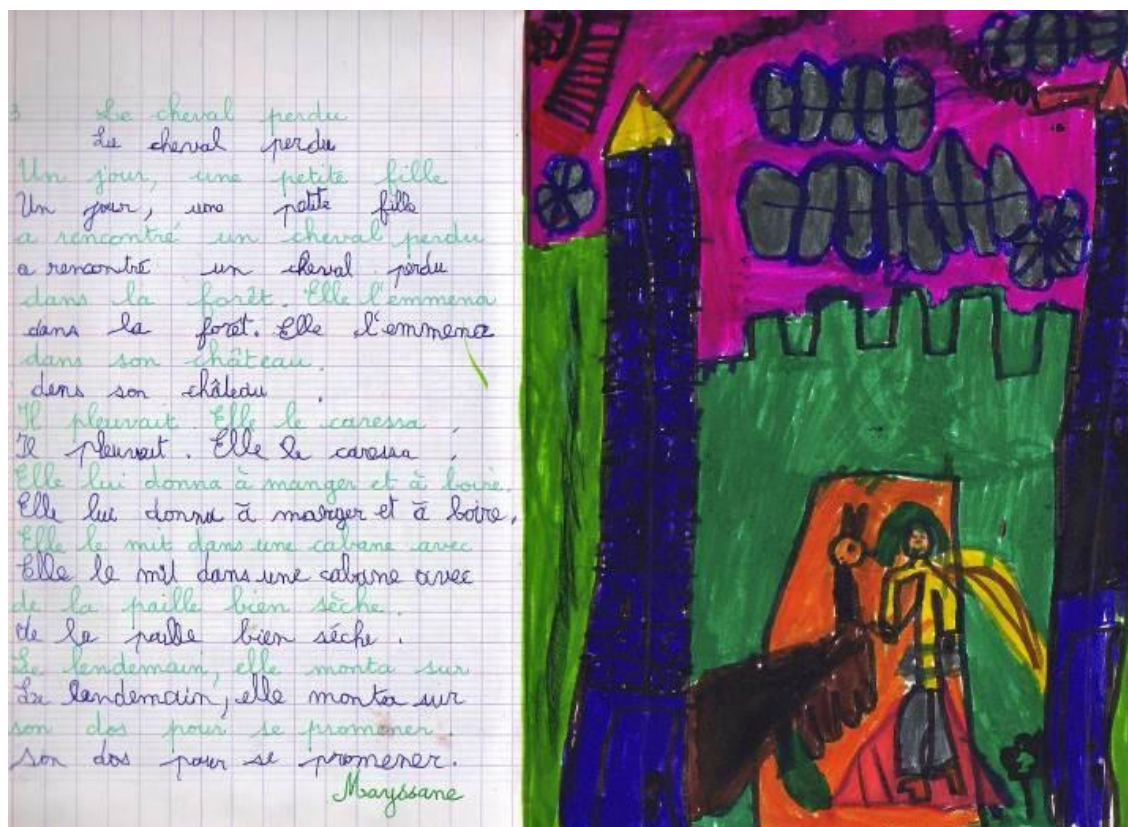 3 Le cheval perdu
Le cheval perdu
Un jour, une petite fille
Un jour, une petite fille
a rencontré un cheval perdu
a rencontré un cheval perdu
dans la forêt. Elle l'emmena
dans la forêt. Elle l'emmena
dans son château.
dens son château.
Il pleuvait. Elle le caressa,
Il pleuvait. Elle le caressa,
Elle lui donna à manger et à boire.
Elle lui donna à manger et à boire.
Elle le mit dans une cabane avec
Elle le mit dans une cabane avec
de la paille bien sèche.
de la paille bien séche.
Le lendemain, elle monta sur
Le landemain, elle monta sur
son dos pour se promener.
son dos pour se promener.
Mayssane